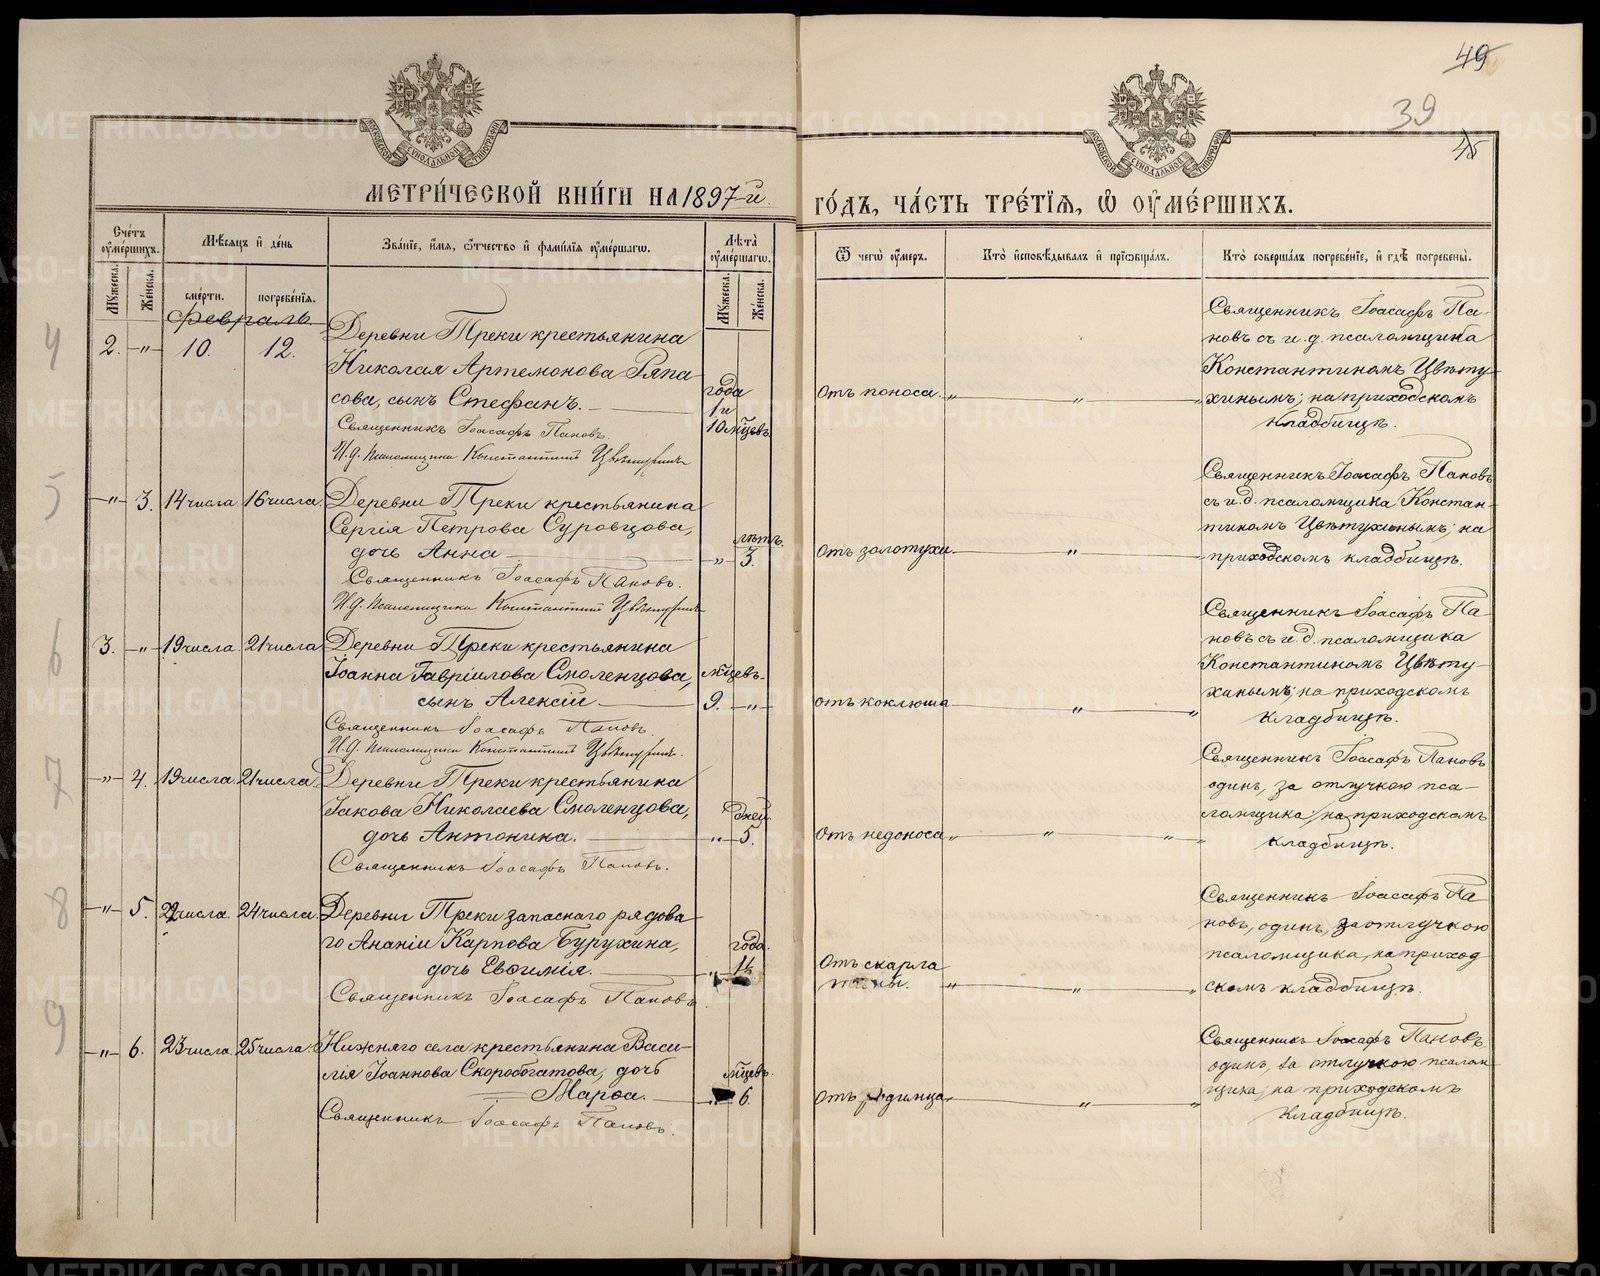 49
39
45
МОСКОВСКОЙ СѴНОДАЛЬНОЙ ТИПОГРАФІИ
МОСКОВСКОЙ СѴНОДАЛЬНОЙ ТИПОГРАФІИ
МЕТРИ́ЧЕСКОЙ КНИ́ГИ НА 1897-й
ГО́ДЪ, ЧА́СТЬ ТРЕ́ТІѦ, Ѡ ОУМЕ́РШИХЪ.
Сче́тъ оуме́ршихъ.
Мѣ́сяцъ и де́нь
Зва́ніе, и́мя, ѻ́тчество и фами́лія оуме́ршагѡ.
Лѣ́та оуме́ршагѡ.
Ѿ чегѡ̀ оу́меръ.
Кто̀ исповѣ́дывалъ и пріѡбща́лъ.
Кто̀ соверша́лъ погребе́ніе, и гдѣ̀ погребены̀.
Му́жеска.
Же́нска.
сме́рти.
погребе́нія.
Му́жеска.
Же́нска.
Февраль
4
2. -„- 10. 12.
Деревни Треки крестьянина
Николая Артемонова Ряпа-
сова, сынъ Стефанъ.
года
1 и
10 мѣсцевъ
Священникъ Іоасафъ Пановъ.
И.д. Псаломщика Константинъ Цвѣтухинъ
Отъ поноса. „ „ „
Священникъ Іоасафъ Па-
новъ съ и.д. псаломщика
Константиномъ Цвѣту-
хинымъ; на приходскомъ
кладбищѣ.
5
-„- 3. 14 числа 16 числа
Деревни Треки крестьянина
Сергія Петрова Суровцова,
дочь Анна
лѣтъ.
„ 3.
Священникъ Іоасафъ Пановъ.
И.д. Псаломщика Константинъ Цвѣтухинъ
Отъ золотухи. „
Священникъ Іоасафъ Пановъ
съ и.д. псаломщика Констан-
тиномъ Цвѣтухинымъ; на
приходскомъ кладбищѣ.
6
3. -„- 19 числа 21 числа
Деревни Треки крестьянина
Іоанна Гавріилова Смоленцова,
сынъ Алексій.
мѣсцевъ
9. -„-
Священникъ Іоасафъ Пановъ.
И.д. Псаломщика Константинъ Цвѣтухинъ.
отъ коклюша „ „
Священникъ Іоасафъ Па-
новъ съ и.д. псаломщика
Константиномъ Цвѣту-
ханымъ; на приходскомъ
кладбищѣ.
7
-„- 4. 19 числа 21 числа.
Деревни Треки крестьянина
Іакова Николаева Смоленцова,
дочь Антонина.
дней
„ 5.
Священникъ Іоасафъ Пановъ.
отъ недоноса „ „ „
Священникъ Іоасафъ Пановъ
одинъ, за отлучкою пса-
ломщика; на приходскомъ
кладбищѣ.
8
-„- 5. 22 числа 24 числа.
Деревни Треки запаснаго рядова-
го Ананіи Карпова Бурухина,
дочь Евѳимія.
года.
„ 1½
Священникъ Іоасафъ Пановъ.
Отъ скарла
тины. „ „ „
Священникъ Іоасафъ Па
новъ, одинъ, за отлучкою
псаломщика, на приход
скомъ кладбищѣ.
9
-„- 6. 23 числа 25 числа.
Нижняго села крестьянина Васи-
лія Іоаннова Скоробогатова, дочь
Марѳа.
мѣсцевъ.
„ 6.
Священникъ Іоасафъ Пановъ.
Отъ родимца. „ „
Священникъ Іоасафъ Пановъ,
одинъ, за отлучкою псалом-
щика, на приходскомъ
кладбищѣ.